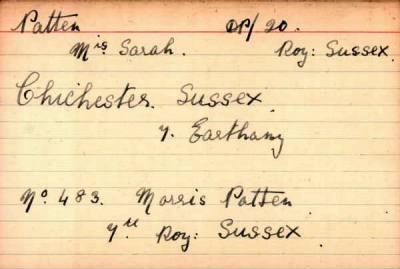 Patten OP/20.
Mis Sarah. Roy: Sussex.
Chichester. Sussex.
7. Earthany
No. 483. Morris Patten
7th Roy: Sussex